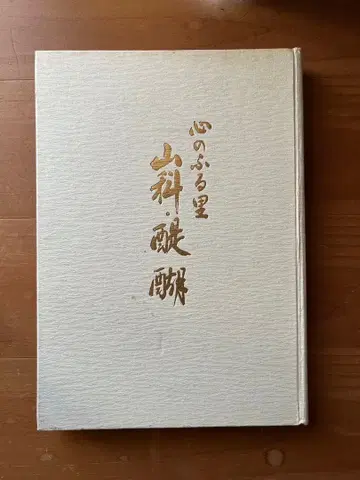 心のふる里
山科・醍醐